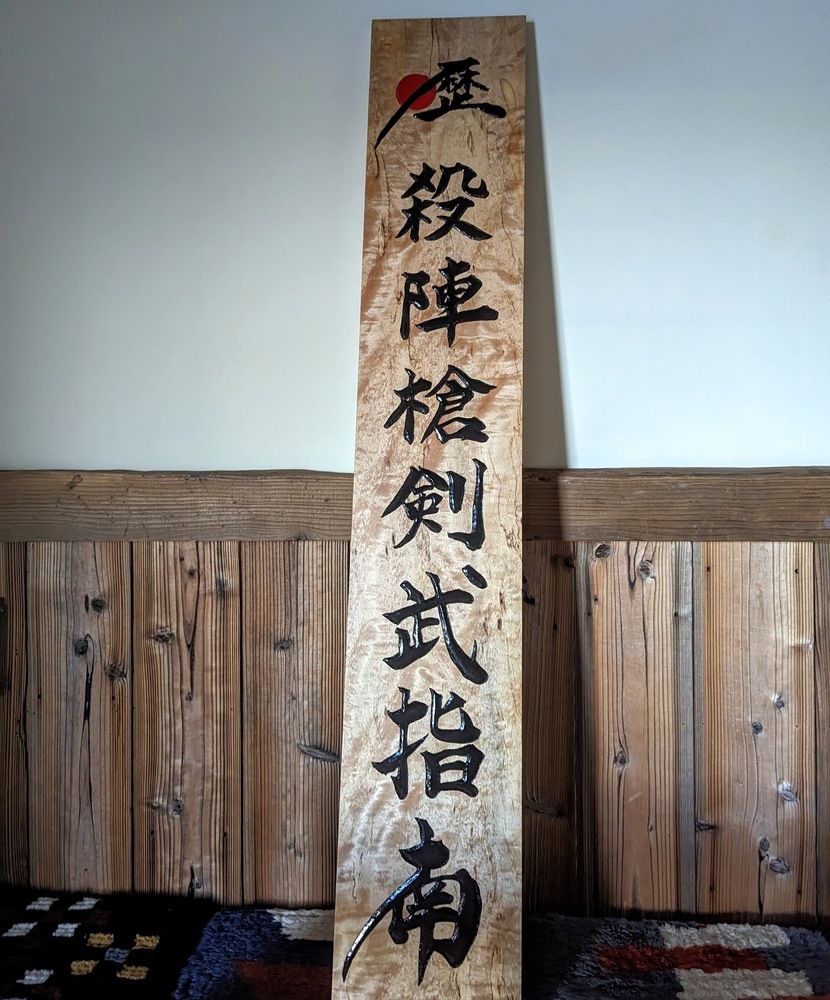 歴殺陣槍剣武指南